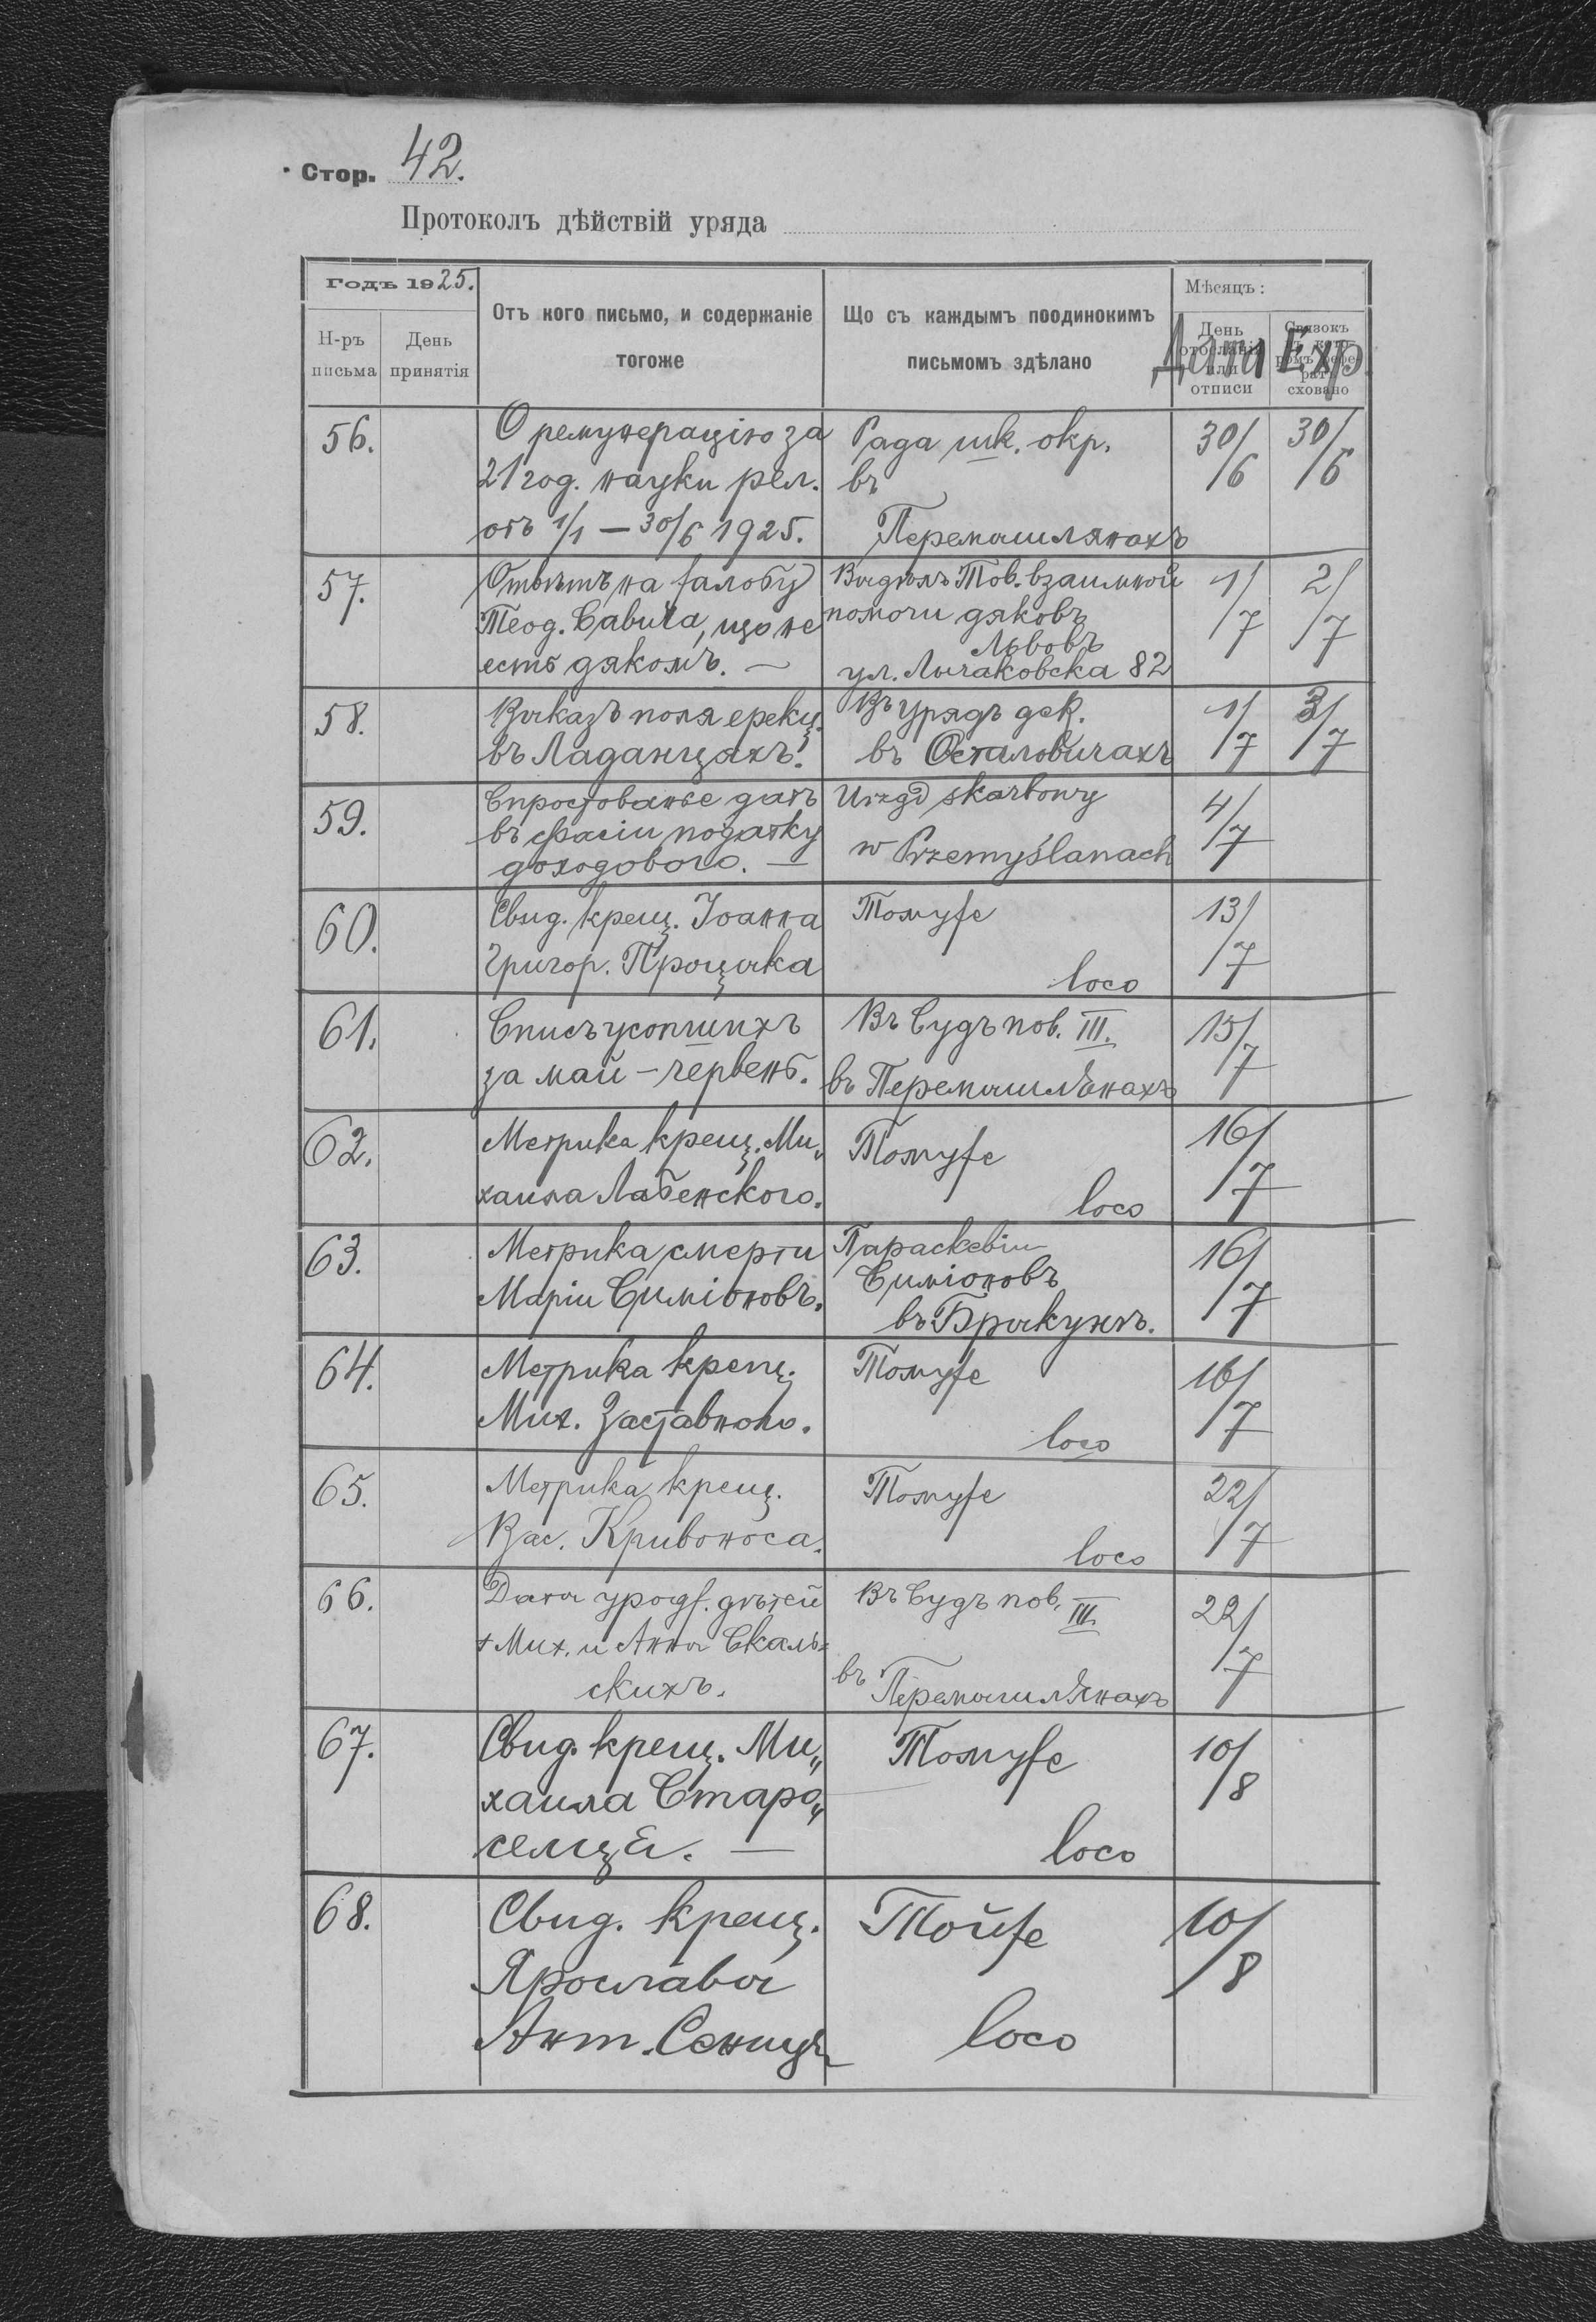 Стор. 42.
Протоколъ дѣйствій уряда
Годъ 1925.
Н-ръ письма
День принятія
Отъ кого письмо, и содержаніе
тогоже
Що съ каждымъ поодинокимъ
письмомъ здѣлано
Мѣсяцъ:
День
отписи
Связокъ
сховано
Дата Exp.
56.
О ремунерацію за
21 год. науки рел.
отъ 1/1 — 30/6 1925.
Рада шк. окр.
въ
Перемышлянахъ
30/6
30/6
57.
Отвѣтъ на жалобу
Теод. Савича, що не
есть дякомъ. —
Выдѣлъ Тов. взаимной
помочи дяковъ
Львовъ
ул. Лычаковска 82
1/7
2/7
58.
Выказъ поля ерекц.
въ Ладанцяхъ.
Въ урядъ дек.
въ Осталовичахъ
1/7
3/7
59.
Спростованье датъ
въ фасіи податку
доходового. —
Urząd skarbowy
w Przemyślanach
4/7
60.
Свид. крещ. Іоанна
Григор. Процыка
Томуже
loco
13/7
61.
Списъ усопшихъ
за май - червень.
Въ Судъ пов. III.
въ Перемышлянахъ
15/7
62.
Метрика крещ. Ми„
хаила Лабенского.
Томуже
loco
16/7
63.
Метрика смерти
Маріи Симіоновъ.
Параскевіи
Симіоновъ
въ Брыкунѣ.
16/7
64.
Метрика крещ.
Мих. Заставного.
Томуже
loco
16/7
65.
Метрика крещ.
Вас. Кривоноса.
Томуже
loco
22/7
66.
Даты урожд. дѣтей
+ Мих. и Анны Скаль=
скихъ.
Въ Судъ пов. III.
въ
Перемышлянахъ
22/7
67.
Свид. крещ. Ми„
хаила Старо„
селця. —
Томуже
loco
10/8
68.
Свид. крещ.
Ярославы
Ант. Сеницъ
Тойже
loco
10/8